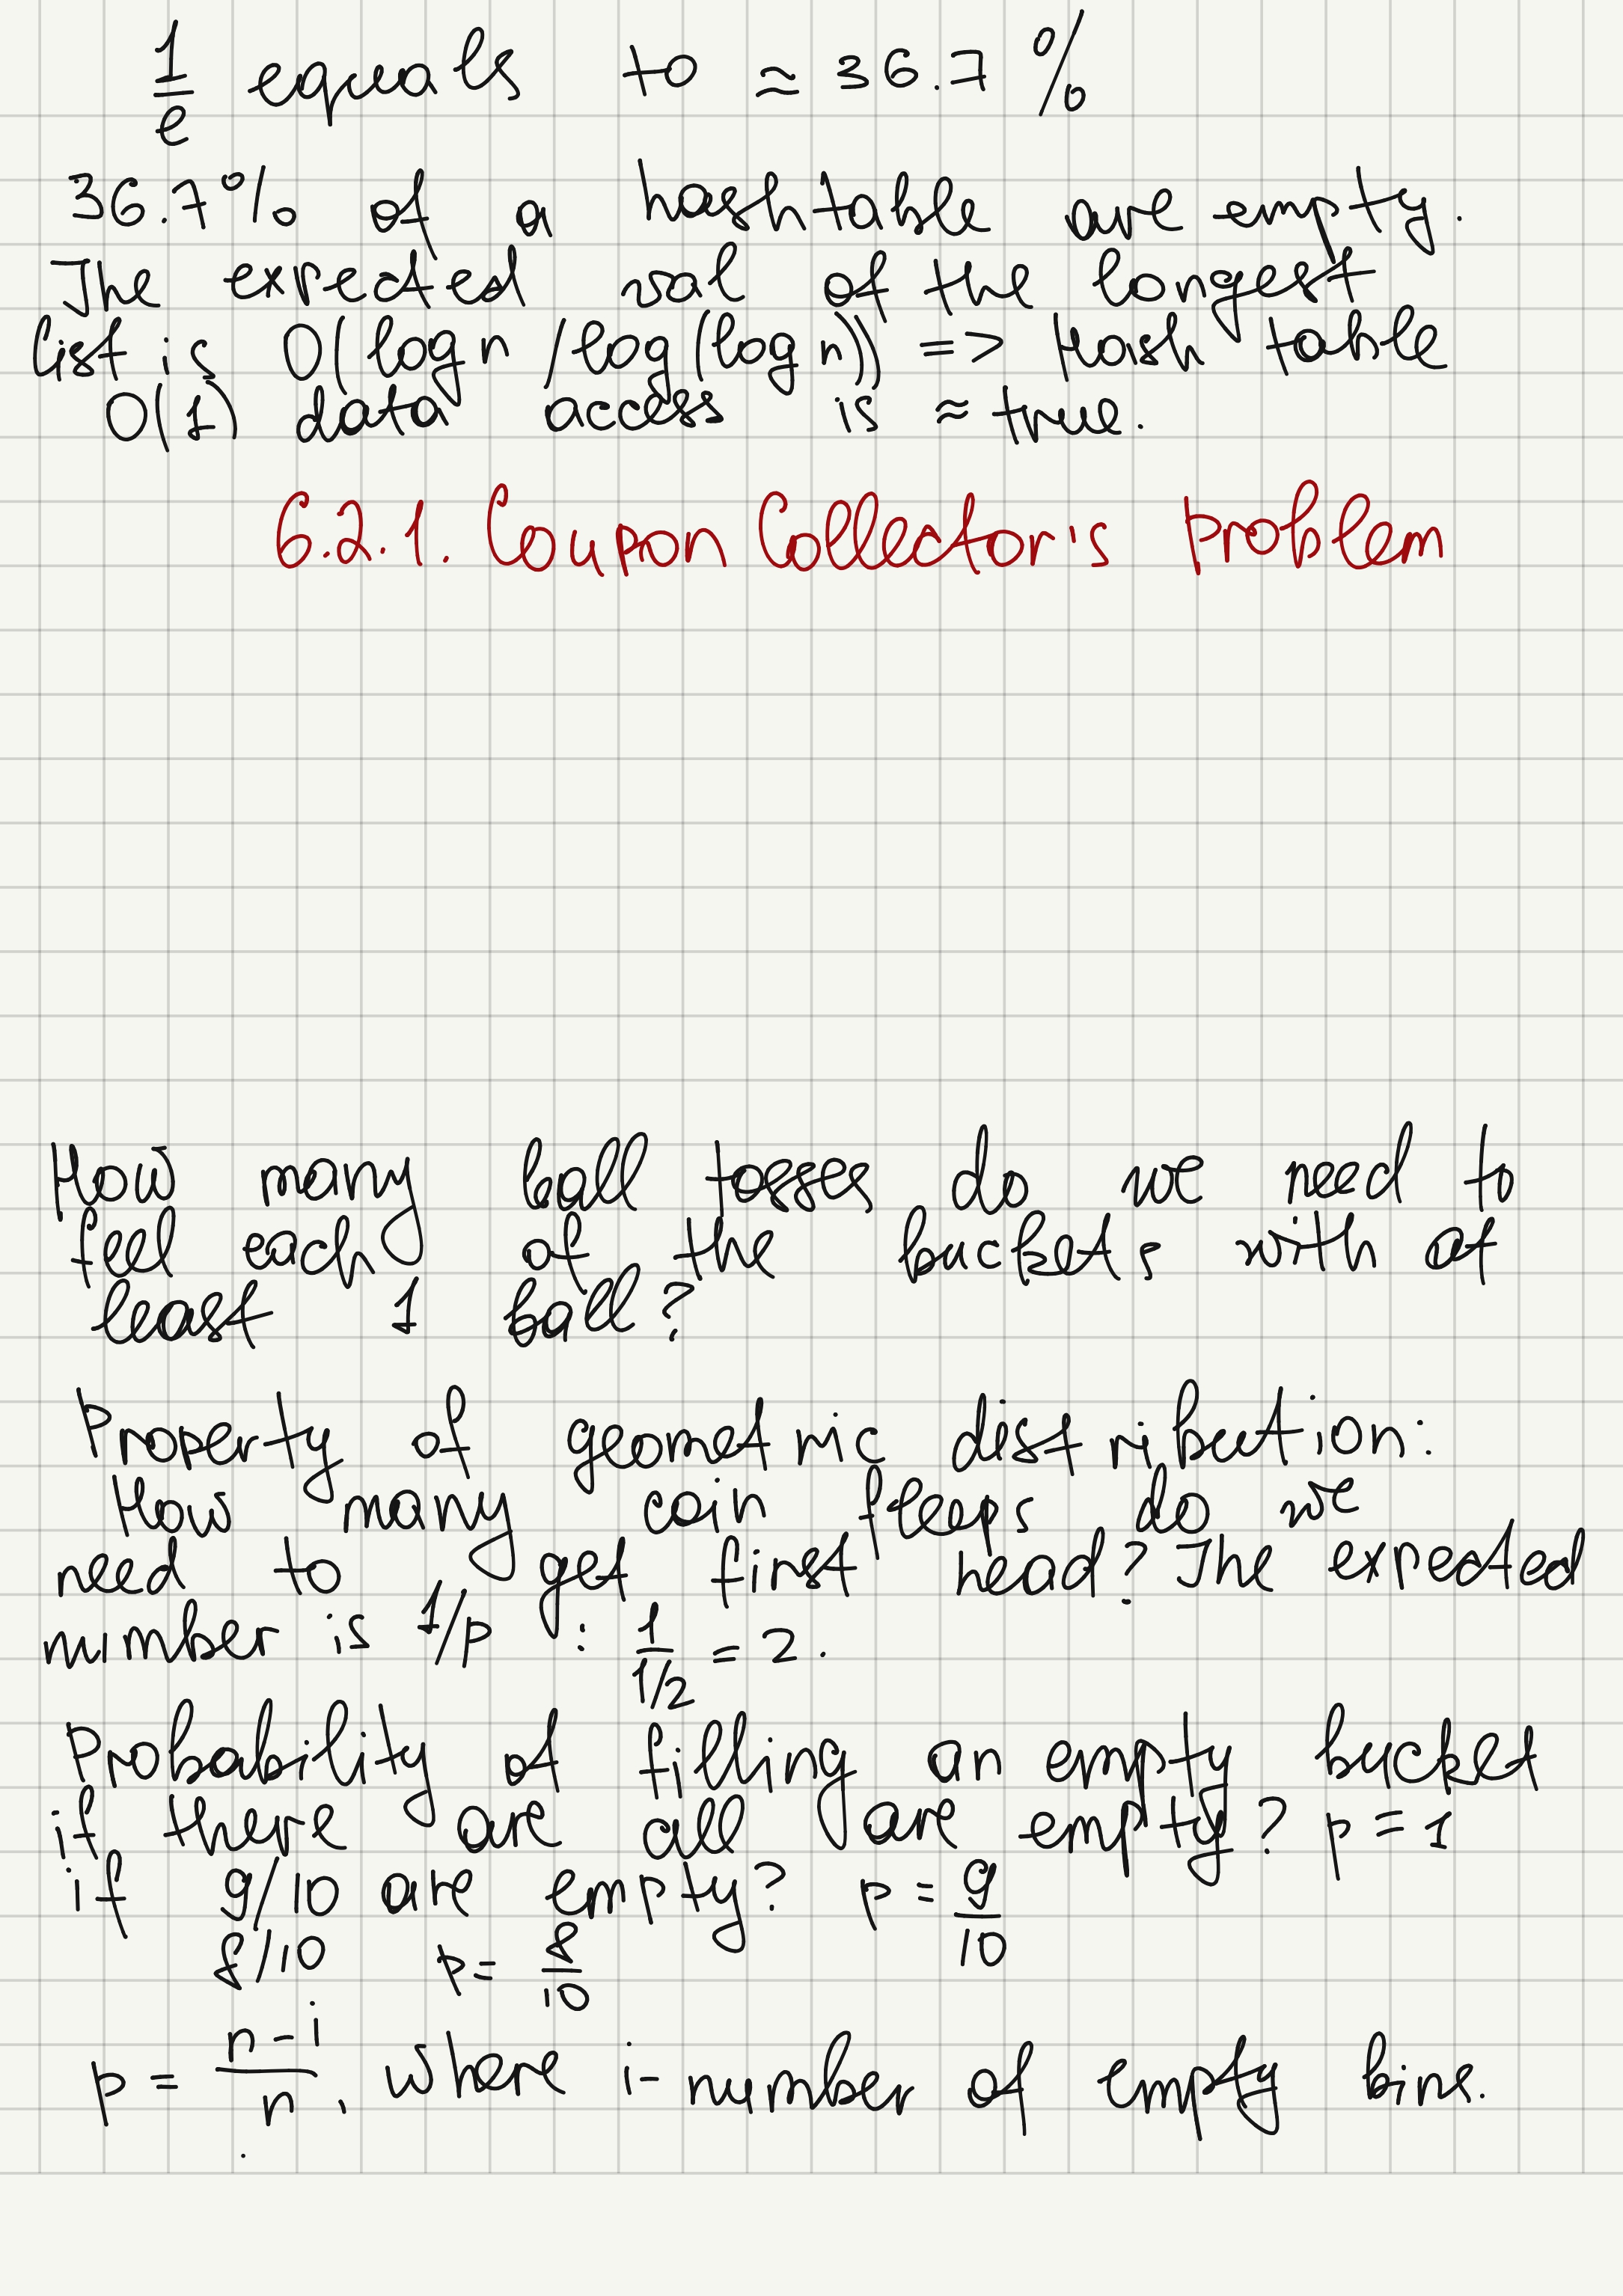 1/e equals to ≈ 36.7 %
36.7% of a hashtable are empty.
The expected val of the longest
list is O(log n / log(log n)) => Hash table
O(1) data access is ≈ true.
6.2.1. Coupon Collector's Problem
How many ball tosses do we need to
feel each of the buckets with at
least 1 ball?
Property of geometric distribution:
How many coin fleeps do we
need to get first head? The expected
number is 1/p : 1/(1/2) = 2.
Probability of filling an empty bucket
if there are all are empty? p = 1
if 9/10 are empty? p = 9/10
8/10 p = 8/10
p = (n-i)/n, where i - number of empty bins.